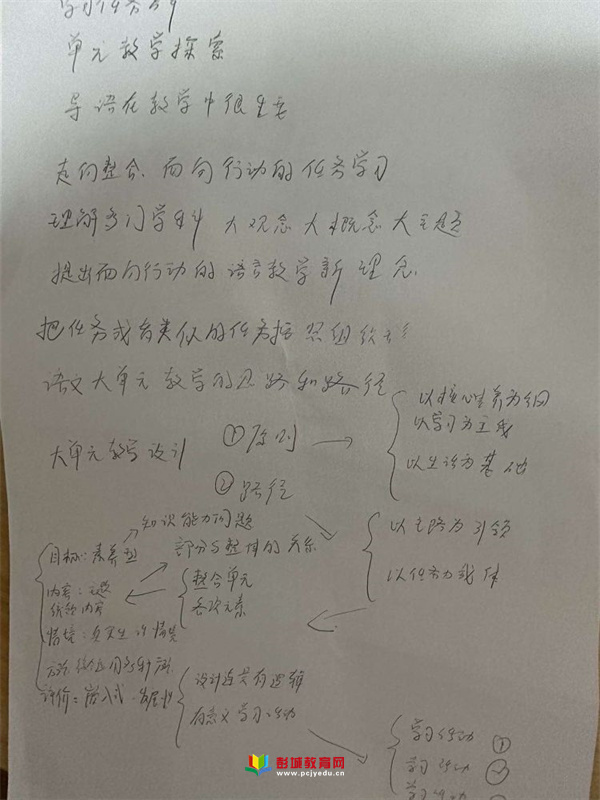 学习任务群
单元教学探索
导语在教学中很重要
走向整合.面向行动的任务学习
理解专门学科 大观念 大概念 大主题
提出面向行动的语言教学新理念.
把任务或者类似的任务按照组织
语文大单元教学的思路和路径
大单元教学设计
①原则
②路径
以核心素养为纲
以学习为主线
以生活为基础
知识能力问题
部分与整体的关系
以主路为引领
以任务为载体
目标:素养型
内容:主题
统领内容
情境:真实生活情境
评价:嵌入式.
整合单元
各次元素
设计应具有逻辑
有意义学习活动
学习活动 ①
学习活动 ②
学习活动
彭城教育网
www.pcjyedu.cn